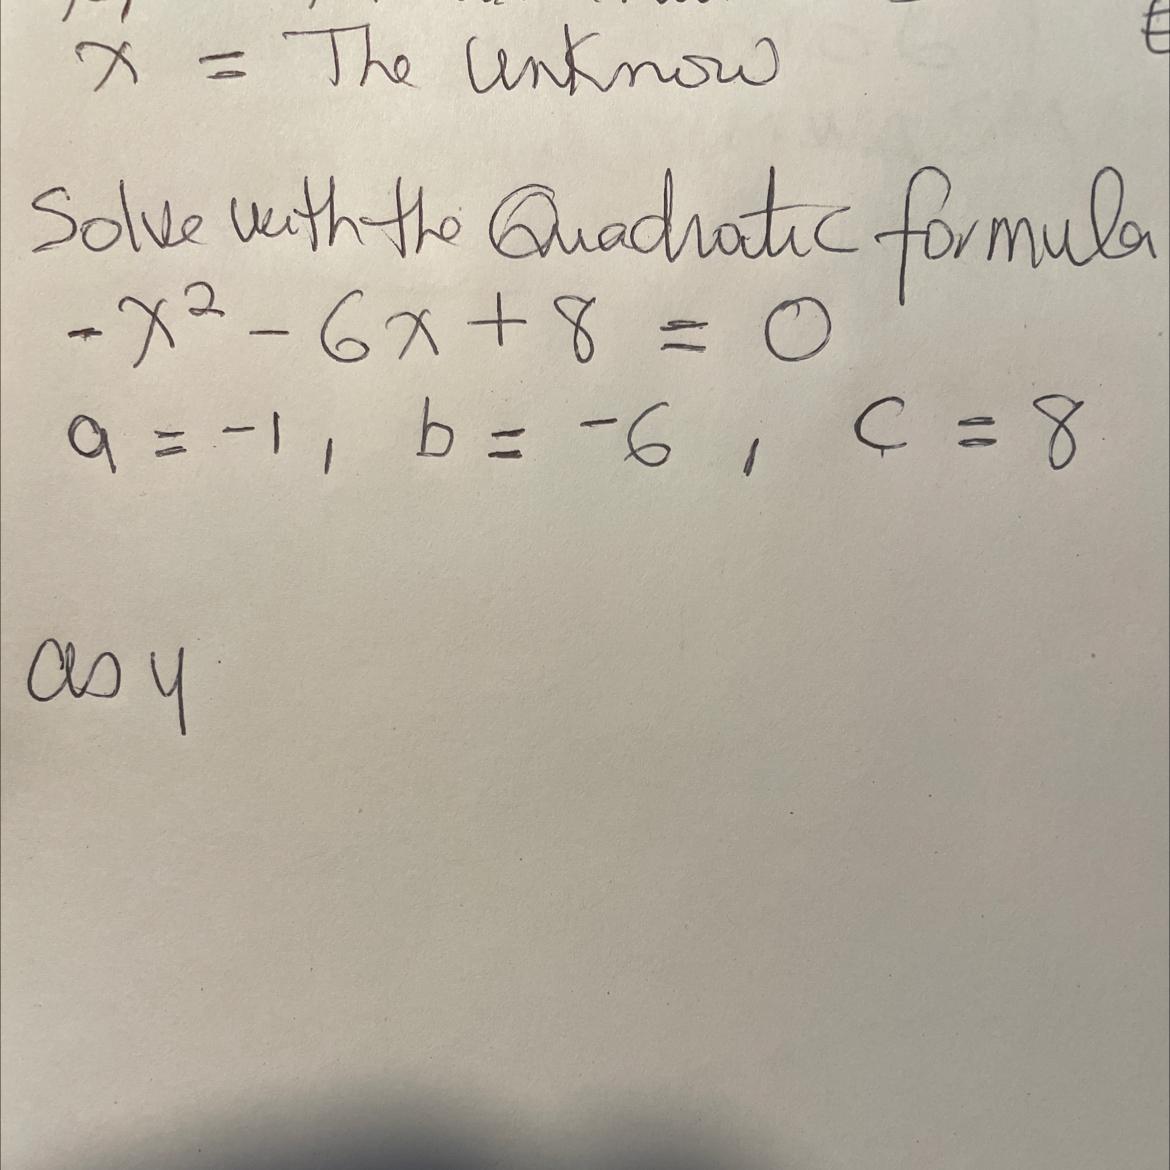 x = The unknow
Solve with the Quadratic formula
-x² - 6x + 8 = 0
a = -1, b = -6, c = 8
as y